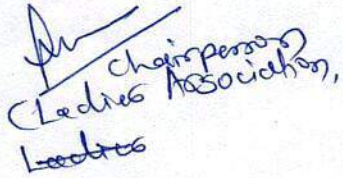 Chairperson
(Ladies Association,